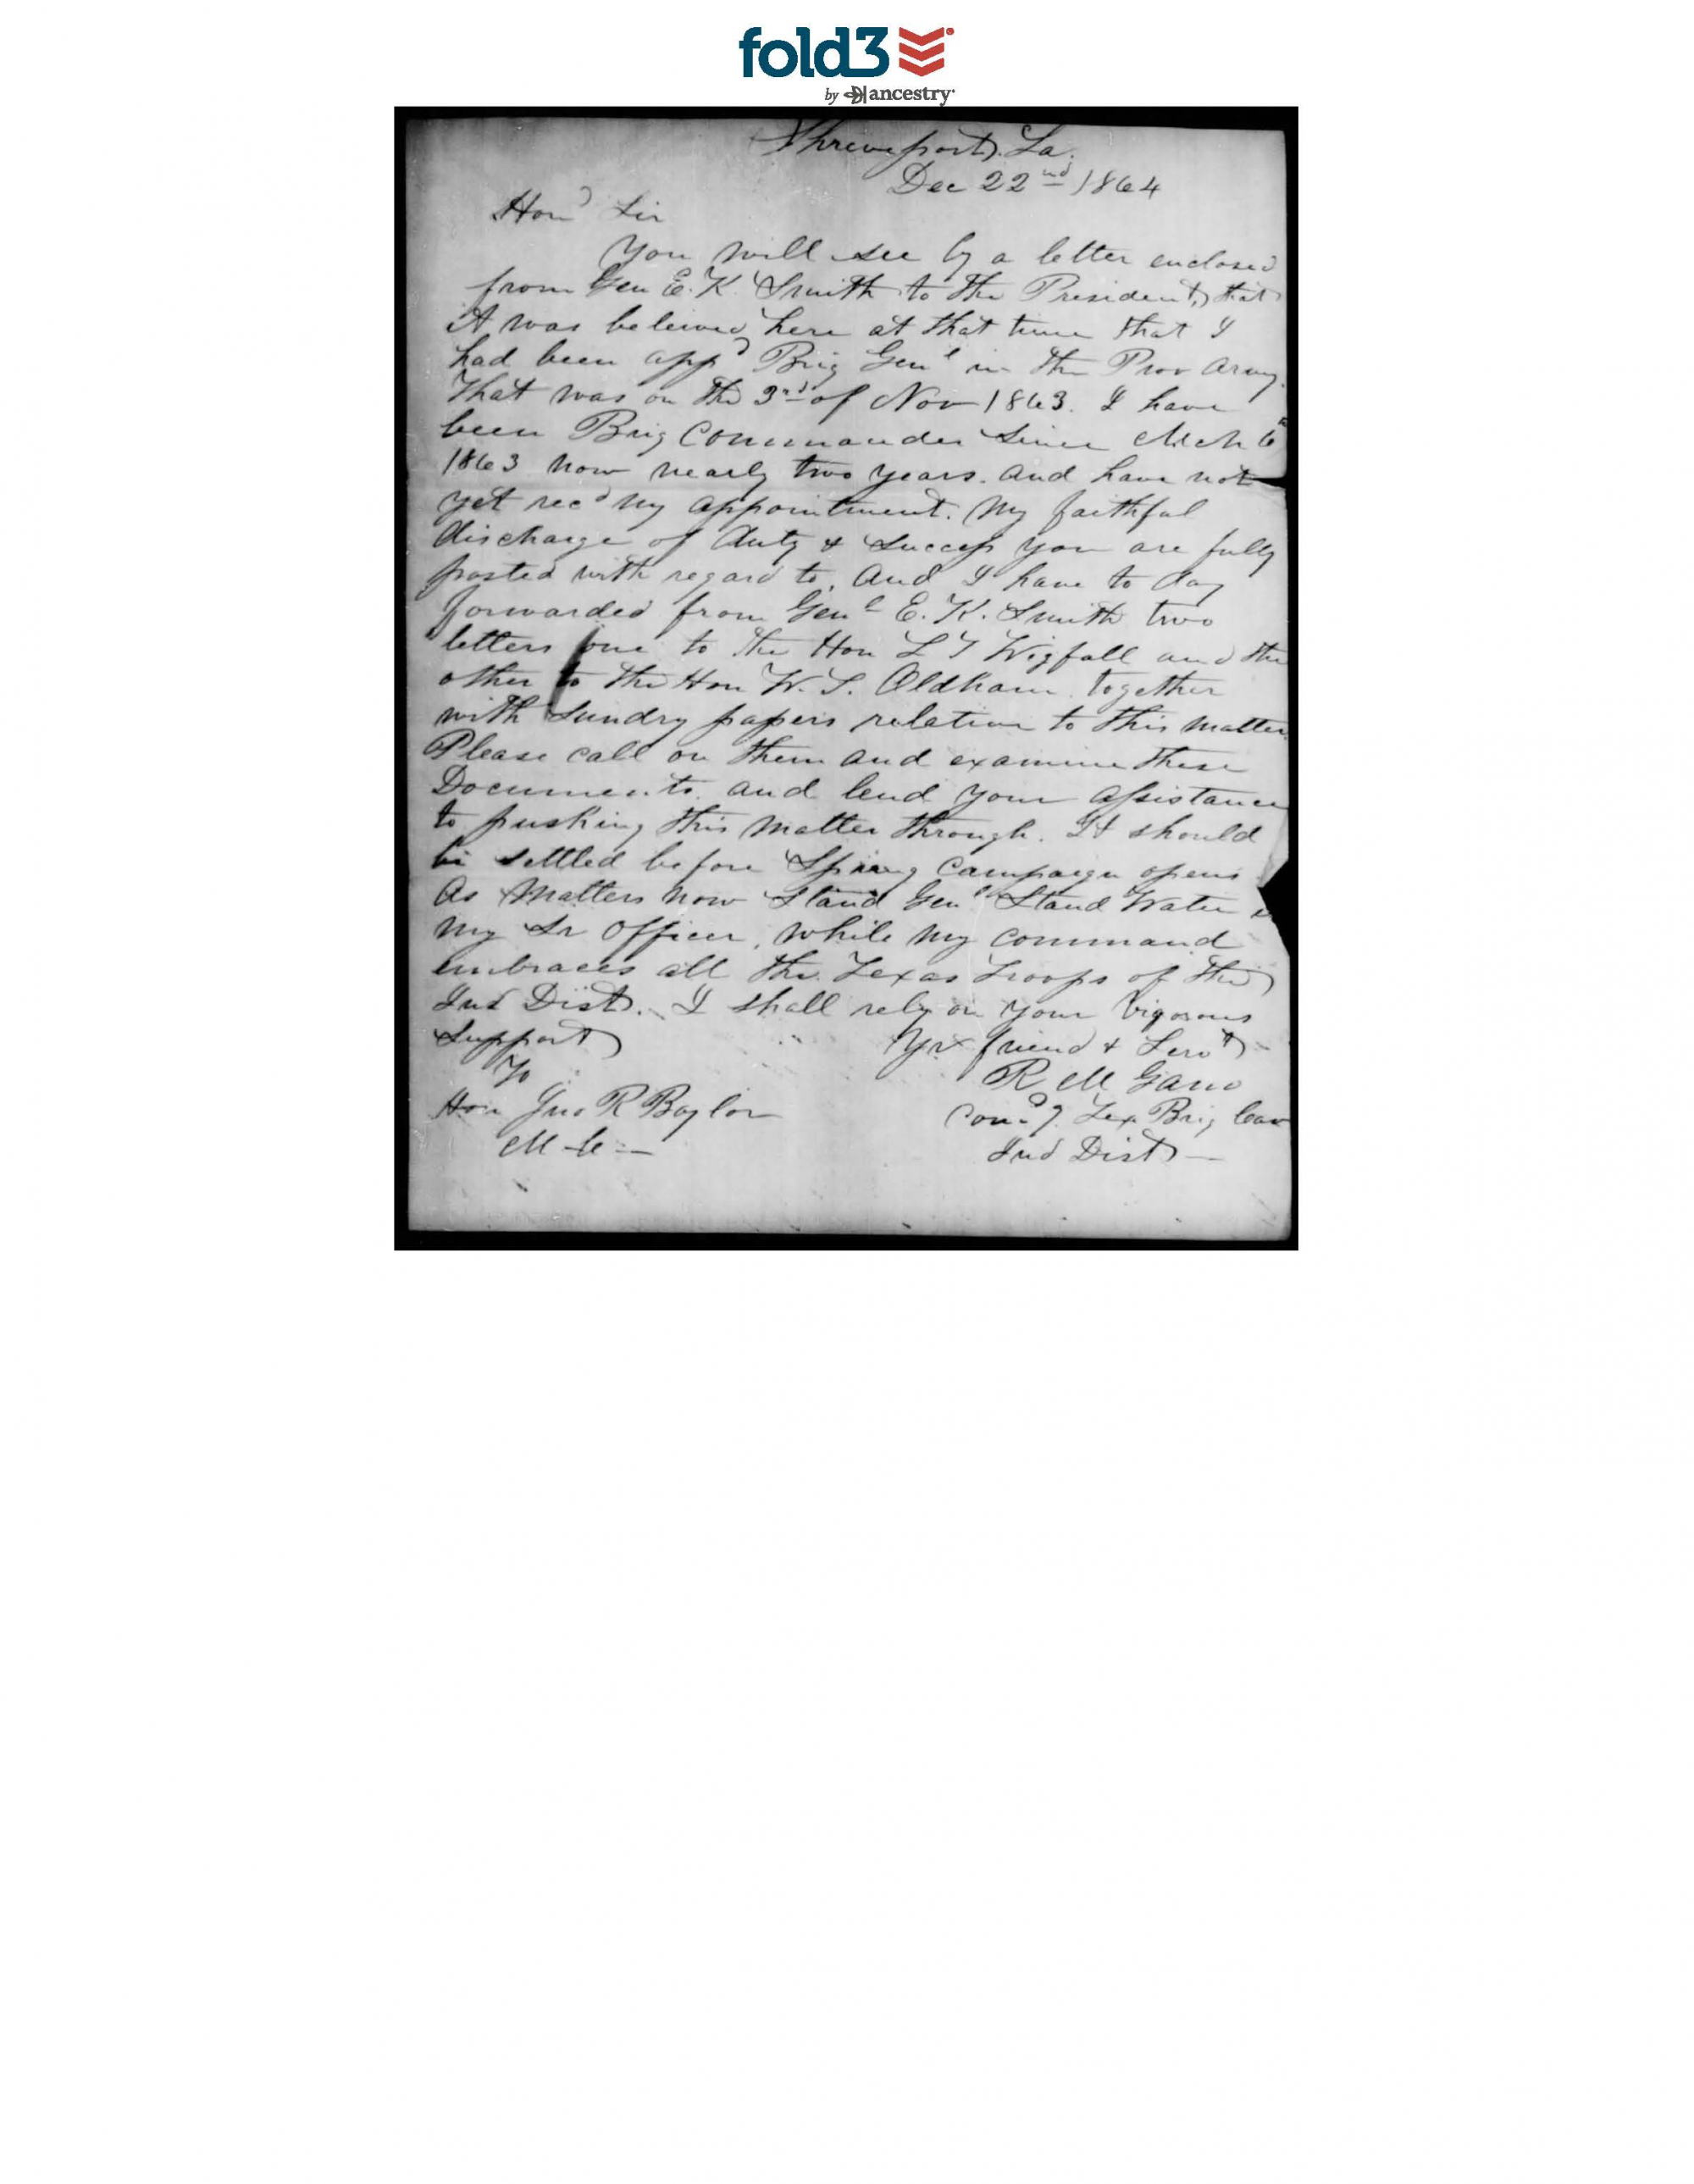 fold3
by ancestry
Shreveport, La.
Dec 22nd 1864
Hond Sir
You will see by a letter enclosed
from Gen E. K. Smith to the President, that
it was beleived here at that time that I
had been appd Brig Genl in the Prov Army.
That was on the 3rd of Nov 1863. I have
been Brig Commander since Mch 6
1863 now nearly two years. and have not
yet recd my appointment. My faithful
discharge of duty & success you are fully
posted with regard to. And I have to day
forwarded from Genl E. K. Smith two
letters one to the Hon L T Wigfall and the
other to the Hon W. S. Oldham. together
with sundry papers relative to this matter.
Please call on them and examine these
Documents. and lend your assistance
to pushing this matter through. It should
be settled before Spring Campaign opens
As matters now stand Genl Stand Watie is
my Sr Officer, while my command
embraces all the Texas troops of the
Ind Dist. I shall rely on your vigorous
support
Yr friend & Servt
To
R M Gano
Hon Jno R Baylor
Comdg. Tex Brig Cav
M C
Ind Dist